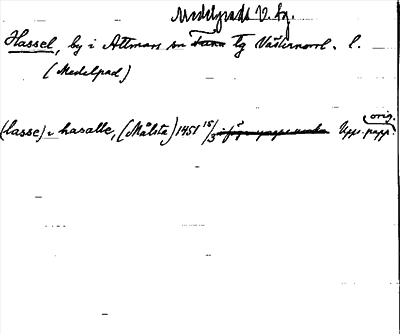 Medelpads V. tg.
Hassel, by i Attmars sn Tuna Tg Västernorrl. l.
(Medelpad)
orig.
(lasse) i hasalle, (Målsta) 1451 15/3 Upps. papp.